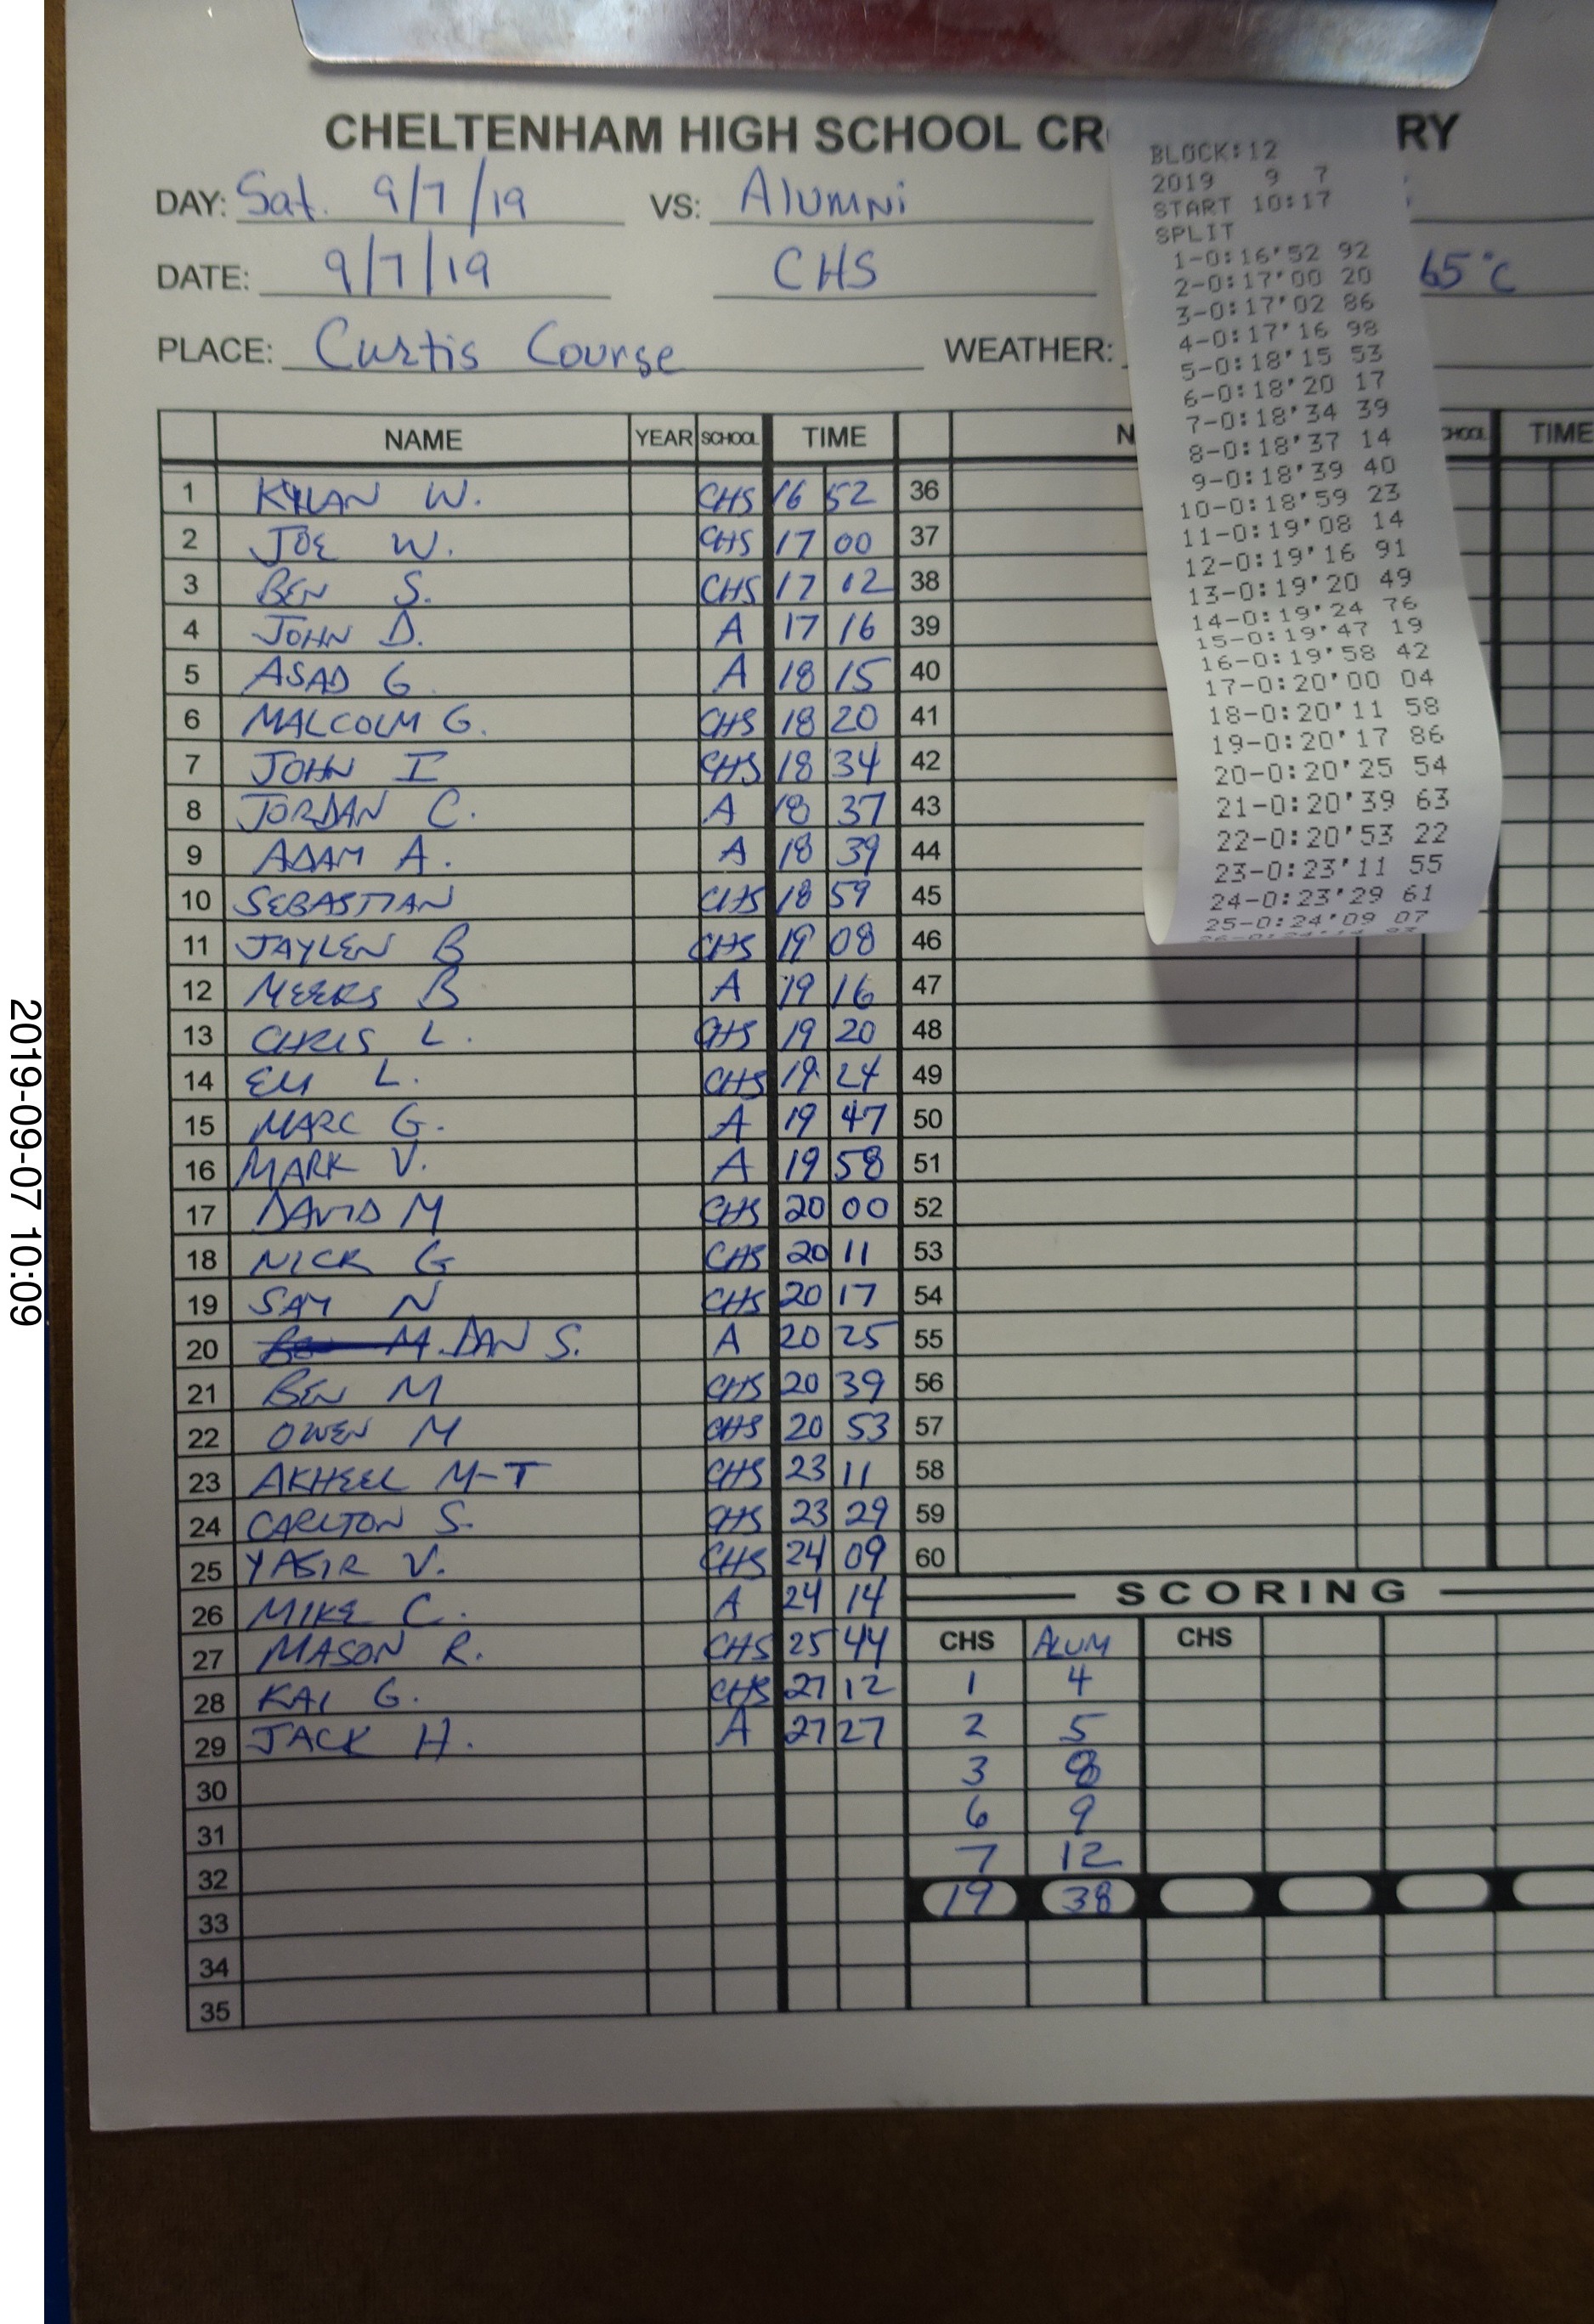 CHELTENHAM HIGH SCHOOL CR RY
DAY: Sat. 9/7/19 VS: Alumni
DATE: 9/7/19 CHS 65°C
PLACE: Curtis Course WEATHER:
BLOCK:12
2019 9 7
START 10:17
SPLIT
1-0:16'52 92
2-0:17'00 20
3-0:17'02 86
4-0:17'16 98
5-0:18'15 53
6-0:18'20 17
7-0:18'34 39
8-0:18'37 14
9-0:18'39 40
10-0:18'59 23
11-0:19'08 14
12-0:19'16 91
13-0:19'20 49
14-0:19'24 76
15-0:19'47 19
16-0:19'58 42
17-0:20'00 04
18-0:20'11 58
19-0:20'17 86
20-0:20'25 54
21-0:20'39 63
22-0:20'53 22
23-0:23'11 55
24-0:23'29 61
25-0:24'09 07
NAME YEAR SCHOOL TIME
1 KYLAN W. CHS 16 52
2 JOE W. CHS 17 00
3 BEN S. CHS 17 02
4 JOHN D. A 17 16
5 ASAD G. A 18 15
6 MALCOLM G. CHS 18 20
7 JOHN I CHS 18 34
8 JORDAN C. A 18 37
9 ADAM A. A 18 39
10 SEBASTIAN CHS 18 59
11 JAYLEN B CHS 19 08
12 MEERS B A 19 16
13 CHRIS L. CHS 19 20
14 ELI L. CHS 19 24
15 MARC G. A 19 47
16 MARK V. A 19 58
17 DAVID M CHS 20 00
18 NICK G CHS 20 11
19 SAM N CHS 20 17
20 DAN S. A 20 25
21 BEN M CHS 20 39
22 OWEN M CHS 20 53
23 AKHEEL M-T CHS 23 11
24 CARLTON S. CHS 23 29
25 YASIR V. CHS 24 09
26 MIKE C. A 24 14
27 MASON R. CHS 25 44
28 KAI G. CHS 27 12
29 JACK H. A 27 27
30
31
32
33
34
35
N HOOL TIME
36
37
38
39
40
41
42
43
44
45
46
47
48
49
50
51
52
53
54
55
56
57
58
59
60
SCORING
CHS ALUM CHS
1 4
2 5
3 8
6 9
7 12
19 38
2019-09-07 10:09